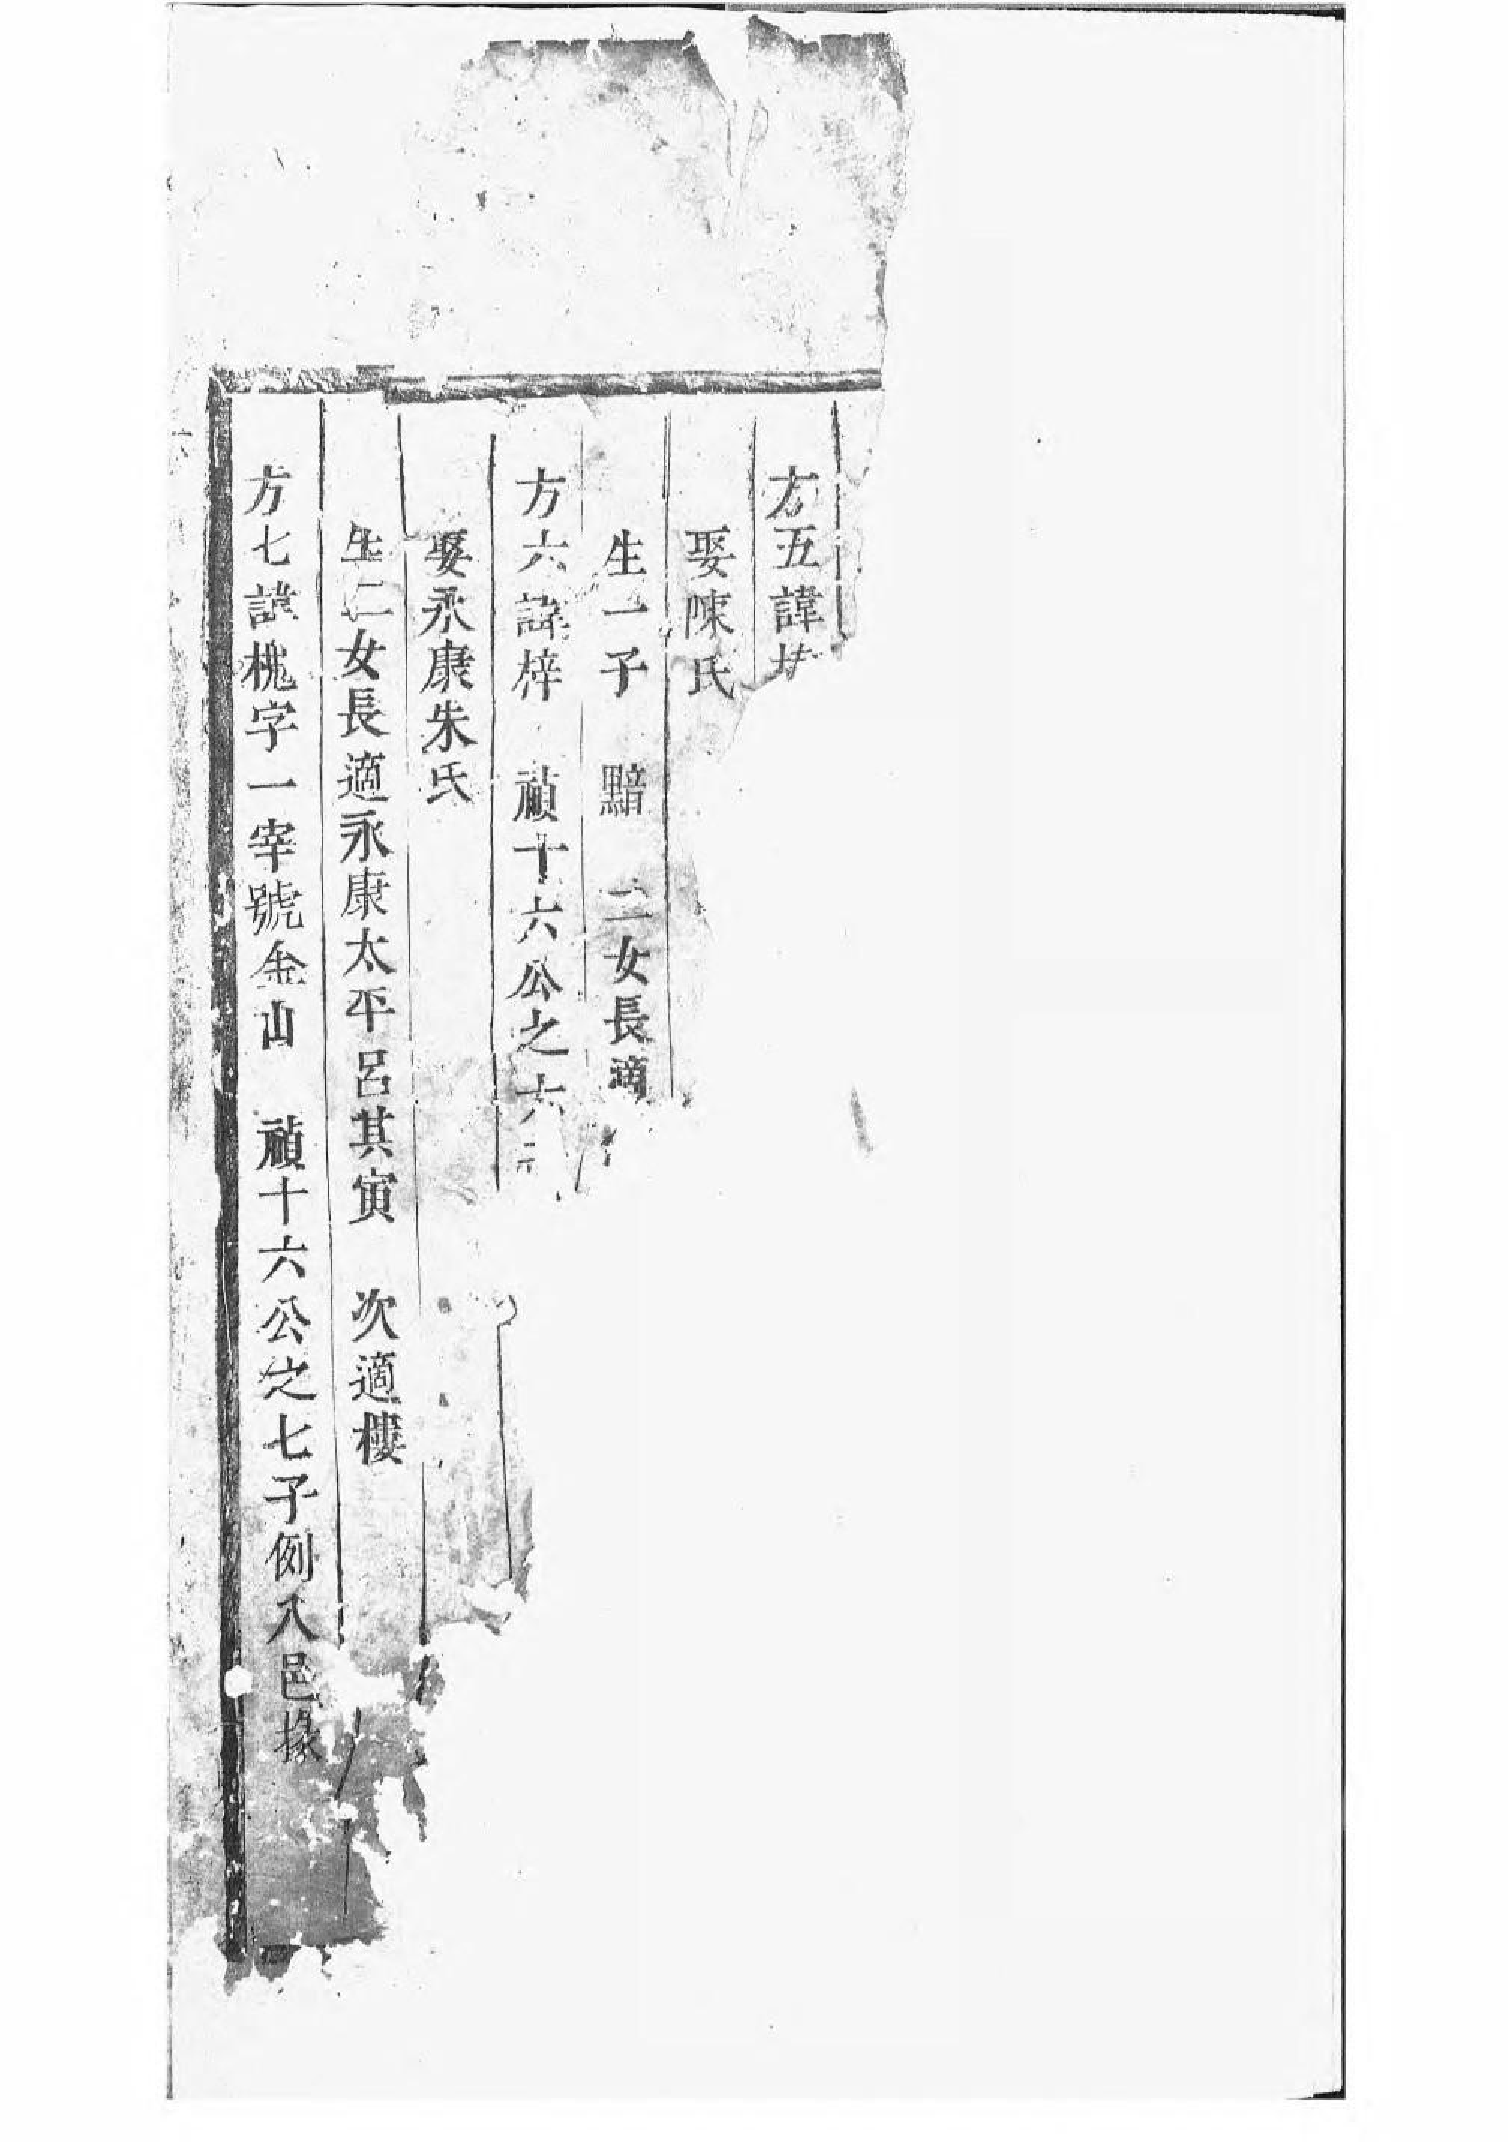 方五諱
娶陳氏
生一子 黯 二女長適
方六諱梓 禎十六公之六
娶永康朱氏
生二女長適永康太平呂其寅 次適樓
方七諱槐字一宰號金山 禎十六公之七子例入邑掾